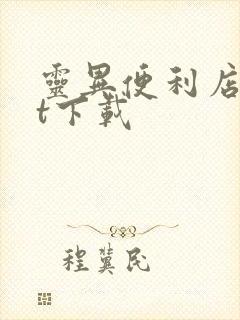 靈異便利店
t下載
程冀民